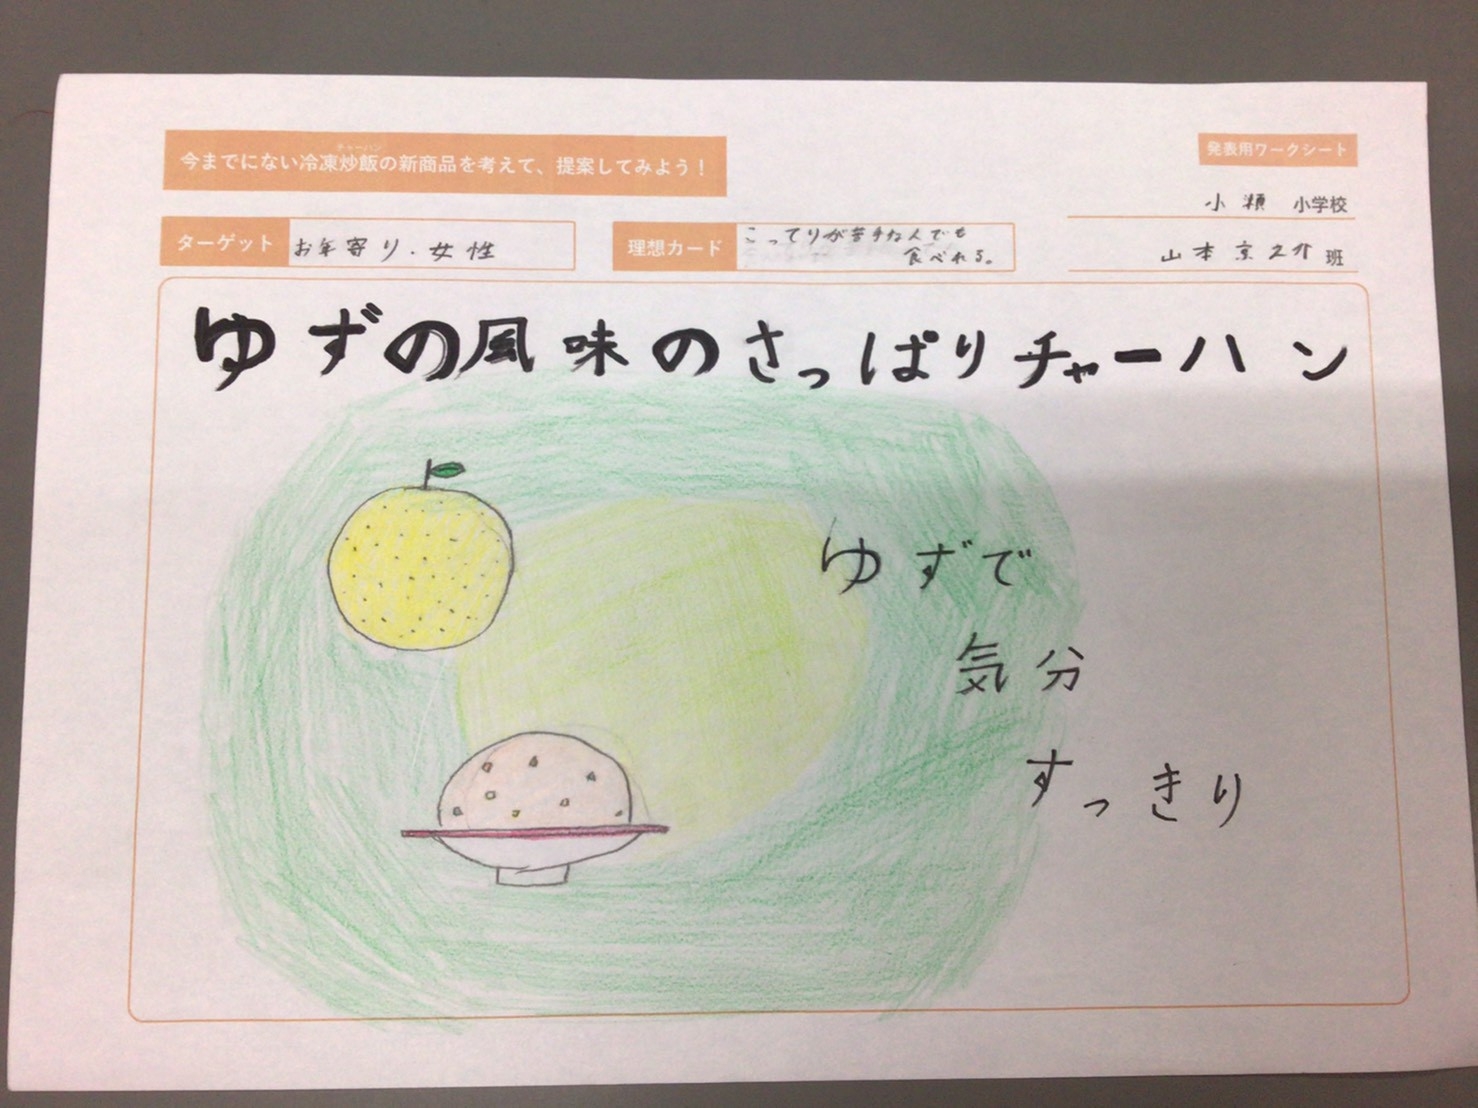 今までにない冷凍炒飯の新商品を考えて、提案してみよう！
チャーハン
発表用ワークシート
小瀬 小学校
ターゲット お年寄り・女性
理想カード こってりが苦手な人でも
食べれる。
山本京之介 班
ゆずの風味のさっぱりチャーハン
ゆずで
気分
すっきり